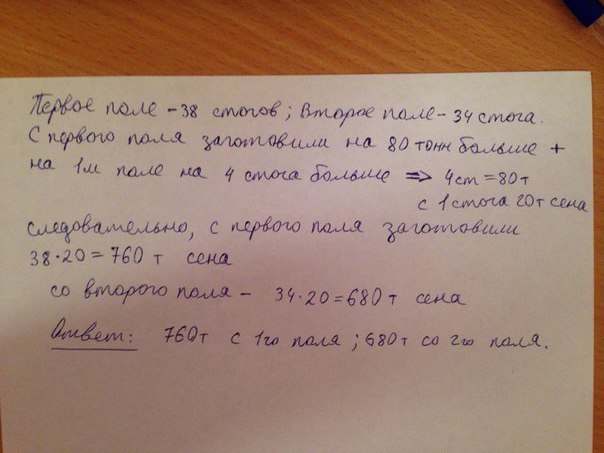 Первое поле - 38 стогов; Второе поле - 34 стога.
С первого поля заготовили на 80 тонн больше +
на 1м поле на 4 стога больше => 4 ст = 80 т
с 1 стога 20 т сена
следовательно, с первого поля заготовили
38 · 20 = 760 т сена
со второго поля - 34 · 20 = 680 т сена
Ответ: 760 т с 1го поля ; 680 т со 2го поля.